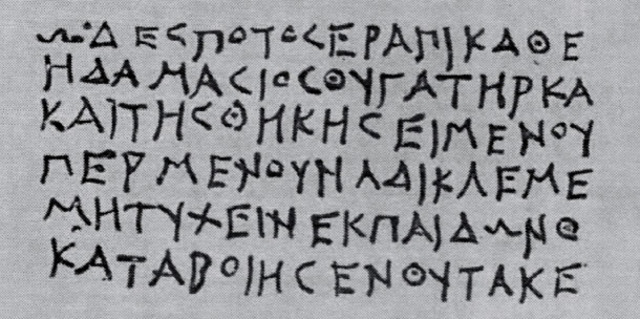 ΩΔΕϹΠΟΤΟϹΕΡΑΠΙΚΑΘΕ
ΗΔΑΜΑϹΙΟϹΘΥΓΑΤΗΡΚΑ
ΚΑΙΤΗϹΘΗΚΗϹΕΙΜΕΝΟΥ
ΠΕΡΜΕΝΟΥΝΑΔΙΚΑΕΜΕ
ΜΗΤΥΧΕΙΝΕΚΠΑΙΔΩΝΘ
ΚΑΤΑΒΟΙΗϹΕΝΘΥΤΑΚΕ